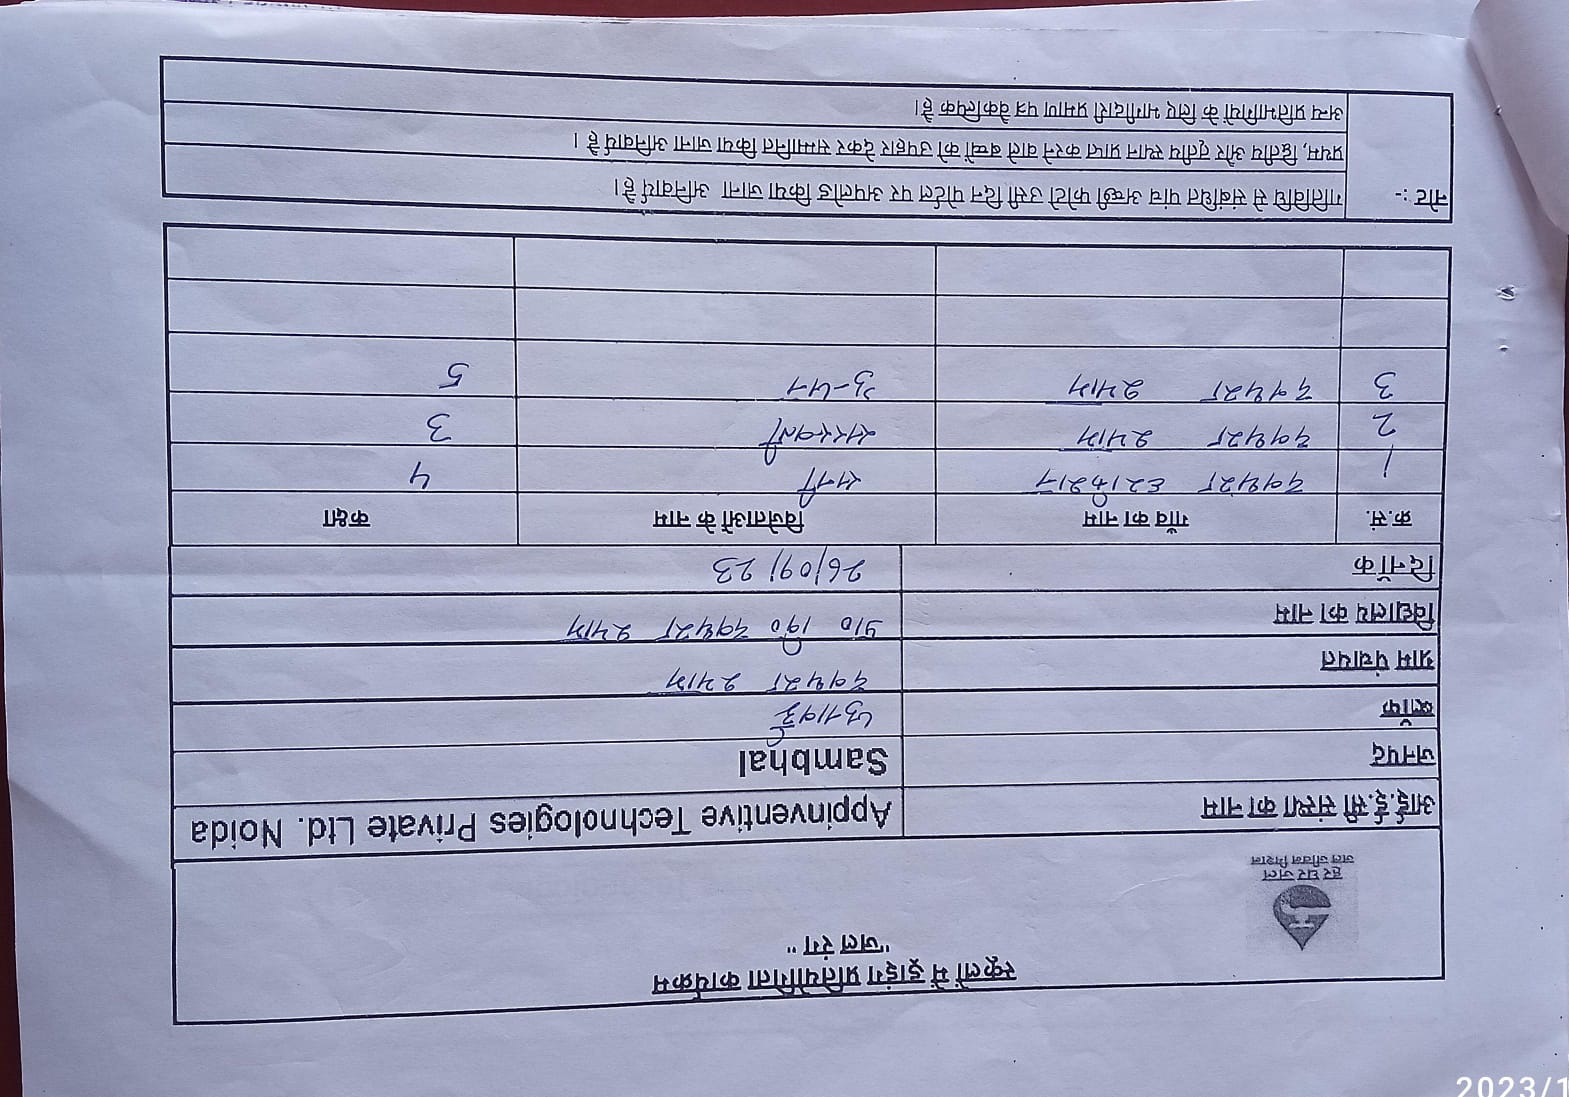 स्कूलों में ड्राइंग प्रतियोगिता कार्यक्रम
"जल रंग"
हर घर जल
जल जीवन मिशन
आई.ई.सी संस्था का नाम Appinventive Technologies Private Ltd. Noida
जनपद Sambhal
ब्लॉक
ग्राम पंचायत
विद्यालय का नाम
दिनाँक 26/09/23
क्र.सं. गाँव का नाम विजेताओं के नाम कक्षा
1 सनी 4
2 सरस्वती 3
3 5
नोट :- गतिविधि से संबंधित पांच अच्छी फोटो उसी दिन पोर्टल पर अपलोड किया जाना अनिवार्य है।
प्रथम, द्वितीय और तृतीय स्थान प्राप्त करने वाले बच्चों को उपहार देकर सम्मानित किया जाना अनिवार्य है ।
अन्य प्रतिभागियों के लिए भागीदारी प्रमाण पत्र वैकल्पिक है।
2023/1